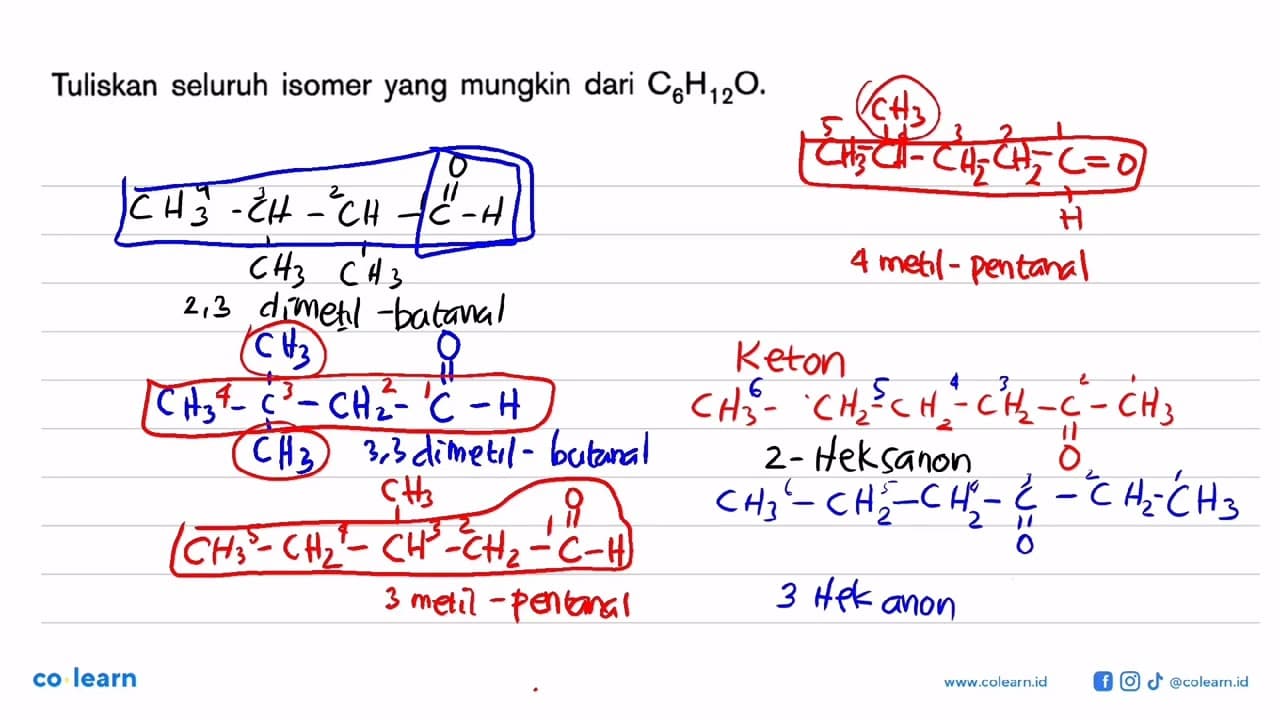 Tuliskan seluruh isomer yang mungkin dari C₆H₁₂O.
O
CH₃⁴ - ³CH - ²CH - C - H
CH₃ CH₃
2,3 dimetil - batanal
CH₃ O
CH₃⁴ - C³ - CH₂² - ¹C - H
CH₃ 3,3 dimetil - butanal
CH₃ O
CH₃⁵ - CH₂⁴ - CH³ - ²CH₂ - ¹C - H
3 metil - pentanal
CH₃
5 4 3 2 1
CH₃ - CH - CH₂ - CH₂ - C = O
H
4 metil - pentanal
Keton
6 5 4 3 2 1
CH₃ - CH₂ - CH₂ - CH₂ - C - CH₃
O
2 - Heksanon
CH₃⁶ - CH₂⁵ - CH₂⁴ - ³C - ²CH₂ - ¹CH₃
O
3 Hek anon
co·learn
www.colearn.id
@colearn.id